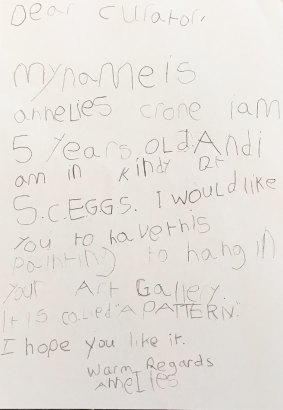 Dear curator,
My name is
annelies crone iam
5 Years OLd. And i
am in Kindy at
S.C.EGGS. I would like
You to have this
painting to hang in
Your Art Gallery.
It is called "A PATTERN".
I hope you like it.
Warm Regards
Annelies